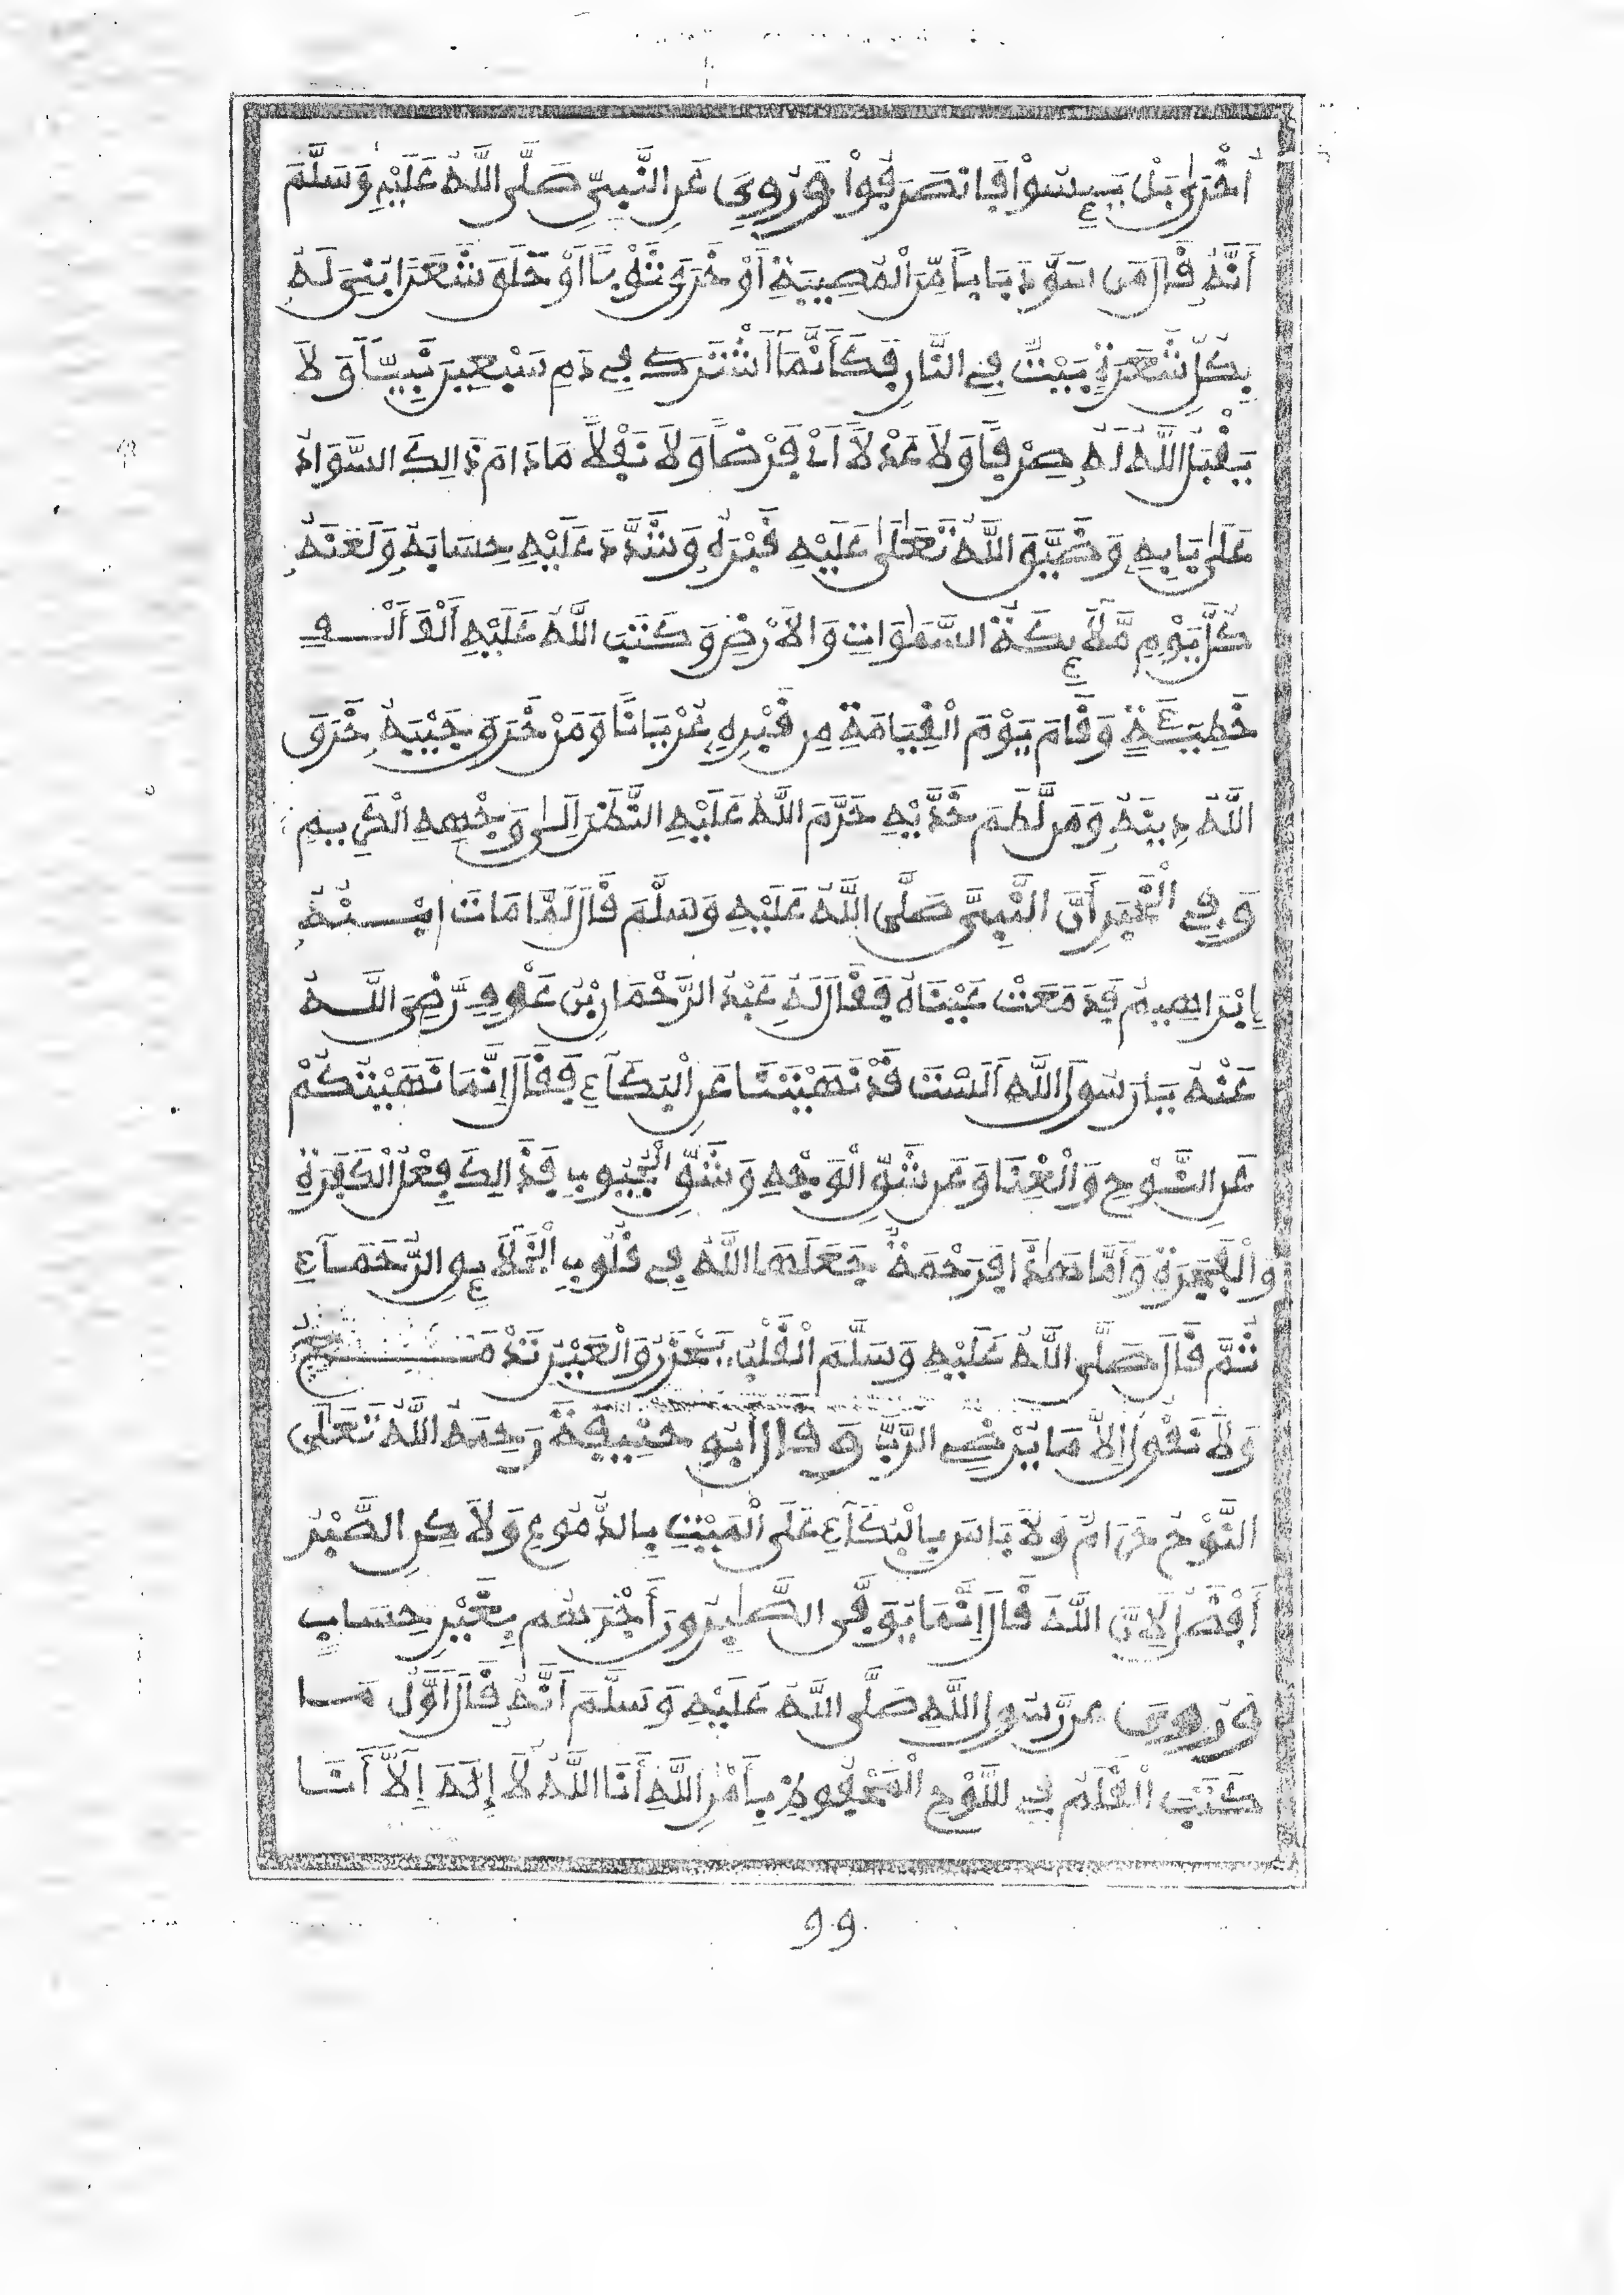 أُخْرَىٰ بَلْ يَيِسُواْ فَانصَرَفُواْ وَرُوِيَ عَنِ النَّبِيِّ صَلَّى اللَّهُ عَلَيْهِ وَسَلَّمَ
أَنَّهُ قَالَ مَن اسَوَّدَ بَابًا مِّنَ الْمُصِيبَةِ أَوْ خَرَقَ ثَوْبًا أَوْ حَلَقَ شَعَرًا بُنِيَ لَهُ
بِكُلِّ شَعَرَةٍ بَيْتٌ فِي النَّارِ فَكَأَنَّمَا أَشْتَرَكَ فِي دَمِ سَبْعِينَ نَبِيًّا وَلاَ
يَقْبَلُ اللَّهُ لَهُ صِرْفًا وَلاَ عَدْلاً أَىْ فَرْضًا وَلاَ نَفْلاً مَادَامَ ذَالِكَ السَّوَادُ
عَلَىٰ بَابِهِ وَضَيَّقَ اللَّهُ تَعَلَىٰ عَلَيْهِ قَبْرَهُ وَشَدَّدَ عَلَيْهِ حِسَابَهُ وَلَعَنَهُ
كُلَّ يَوْمٍ مَّلَآئِكَةُ السَّمَٰوَاتِ وَالاَرْضِ وَكَتَبَ اللَّهُ عَلَيْهِ أَلْفَ أَلْفِ
خَطِيئَةٍ وَقَامَ يَوْمَ الْقِيَامَةِ مِن قَبْرِهِ عُرْيَانًا وَمَنْ خَرَقَ جَيْبَهُ خَرَقَ
اللَّهُ دِينَهُ وَمَن لَّطَمَ خَدَّيْهِ حَرَّمَ اللَّهُ عَلَيْهِ النَّظَرَ إِلَىٰ وَجْهِهِ الْكَرِيمِ
وَفِي الْخَبَرِ أَنَّ النَّبِيَّ صَلَّى اللَّهُ عَلَيْهِ وَسَلَّمَ قَالَ لَمَّا مَاتَ ابْنُهُ
إِبْرَاهِيمُ فَدَمَعَتْ عَيْنَاهُ فَقَالَ لَهُ عَبْدُ الرَّحْمَانِ بْنُ عَوْفٍ رَّضِيَ اللَّهُ
عَنْهُ يَا رَسُولَ اللَّهِ أَلَسْتَ قَدْ نَهَيْتَنَا عَنِ الْبُكَآءِ فَقَالَ إِنَّمَا نَهَيْتُكُمْ
عَنِ النَّوْحِ وَالْغِنَا وَعَن شَقِّ الْوَجْهِ وَشَقِّ الْجُيُوبِ فَذَالِكَ فِعْلُ الْكَفَرَةِ
وَالْفَجَرَةِ وَأَمَّا هَٰذَا فَرَحْمَةٌ جَعَلَهَا اللَّهُ فِي قُلُوبِ الْخَلَآئِقِ الرُّحَمَآءِ
ثُمَّ قَالَ صَلَّى اللَّهُ عَلَيْهِ وَسَلَّمَ الْقَلْبُ يَحْزَنُ وَالْعَيْنُ تَدْمَعُ
وَلَا نَقُولُ إِلاَّ مَا يَرْضِي الرَّبَّ وَقَالَ أَبُو حَنِيفَةَ رَحِمَهُ اللَّهُ تَعَلَى
النَّوْحُ حَرَامٌ وَلاَ بَاسَ بِالْبُكَآءِ عَلَى الْمَيِّتِ بِالدُّمُوعِ وَلاَكِنِ الصَّبْرُ
أَفْضَلُ لِأَنَّ اللَّهَ قَالَ إِنَّمَا يُوَفَّى الصَّٰبِرُونَ أَجْرَهُم بِغَيْرِ حِسَابٍ
وَرُوِيَ عَن رَّسُولِ اللَّهِ صَلَّى اللَّهُ عَلَيْهِ وَسَلَّمَ أَنَّهُ قَالَ أَوَّلُ مَا
كَتَبَ الْقَلَمُ فِي للَّوْحِ الْمَحْفُوظِ بِأَمْرِ اللَّهِ أَنَا اللَّهُ لَا إِلَٰهَ إِلاَّ أَنَا
99